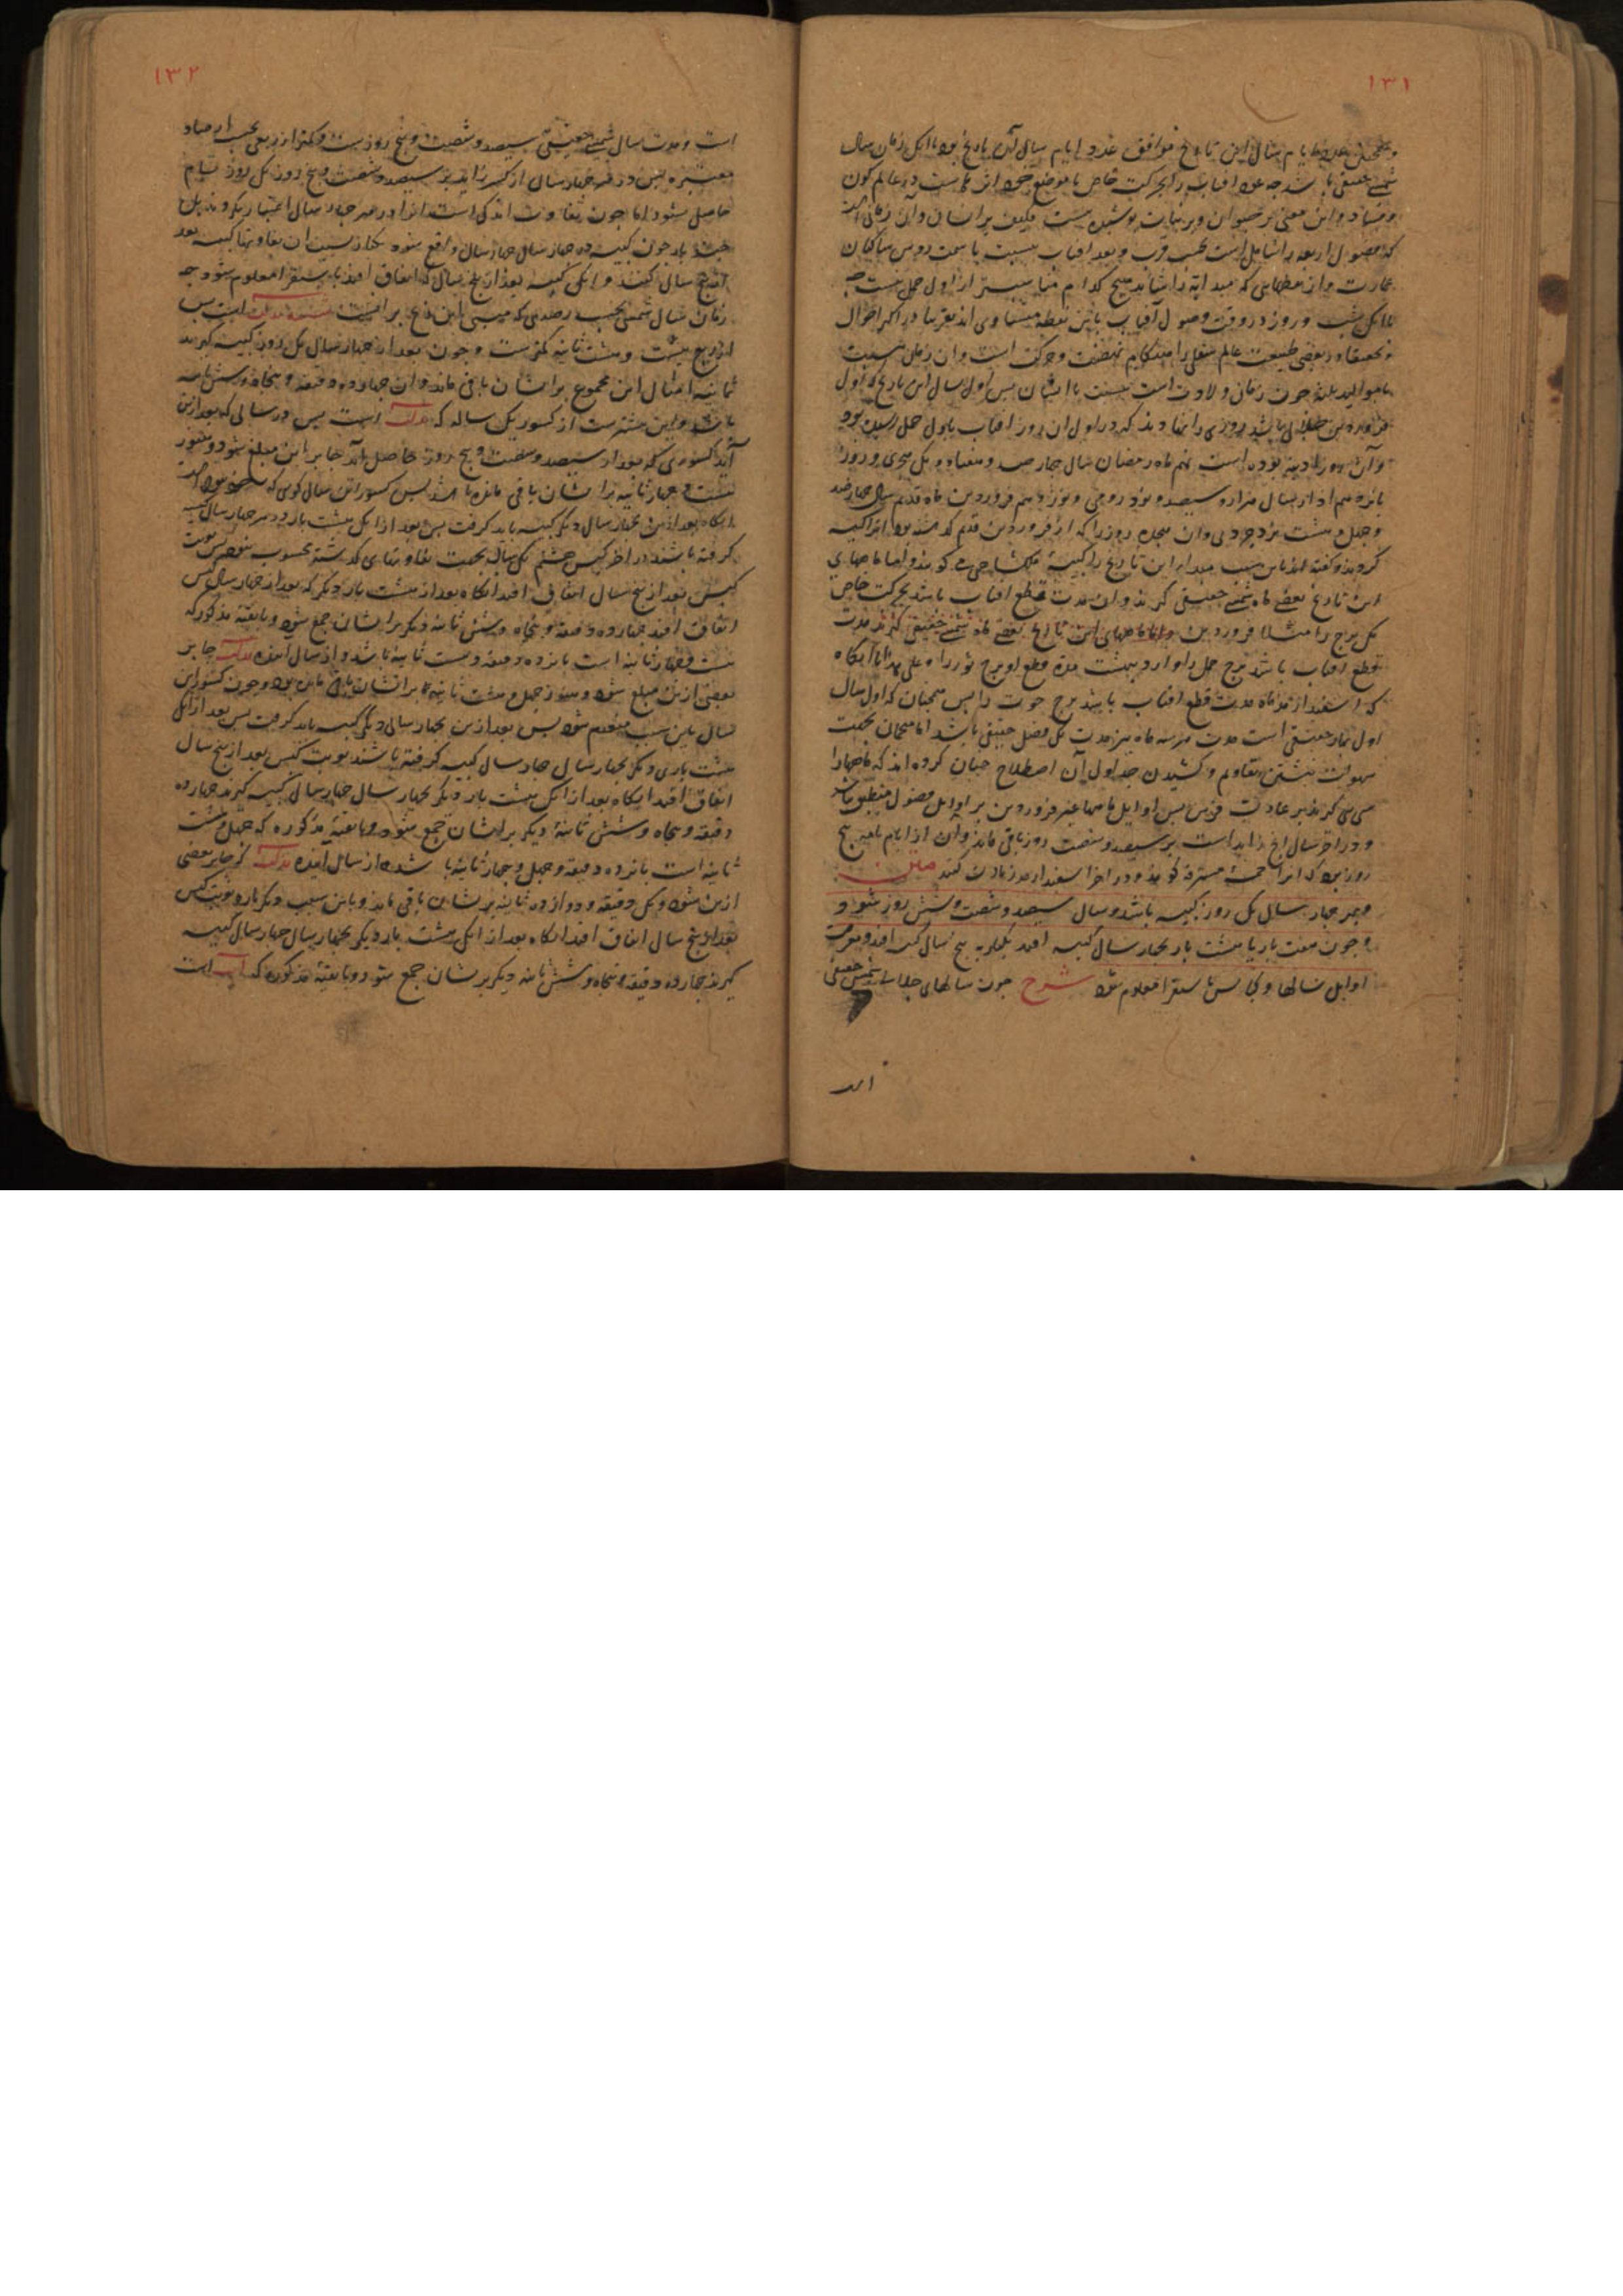 ۱۳۱
شمسی حقیقی باشد چه عود افتاب را بحرکت خاص با موضع خود اثر ظاهرست در عالم کون
و فساد و این معنی بر حیوان و بر نبات پوشیده نیست فکیف بر انسان و ان زمانی است
که فصول اربعه را شاملست بحسب قرب و بعد افتاب نسبت با سمت روس ساکنان
عمارت و از نقطهایی که مبدایة را شاید هیچ کدام مناسبتر از اول حمل نیست چه
با انک شب و روز در وقت وصول آفتاب باین نقطه متساوی اند تقریبا در اکثر احوال
و تحقیقا در بعضی طبیعت عالم سفلی را هنکام نهضت و حرکت است و ان زمان نسبت
با موالید ثلثه چون زمان ولادت است نسبت با انسان پس اول سال این تاریخ که اول
فروردین جلالی باشد روزی را نهادند که در اول ان روز افتاب باول حمل رسیده بود
و آن روز آدینه بوده است نهم ماه رمضان سال چهارصد و هفتاد و یک هجری و روز
پانزدهم اذار سال هزار و سیصد و نود رومی و نوزدهم فروردین ماه قدیم سال چهارصد
و چهل و هشت یزدجردی و ان هجده روز را که از فروردین قدیم گذشته بود انرا کبیسه
کردند و کفته اند باین سبب مبدا این تاریخ را کبیسۀ ملکشاهی کویند و اما ماههای
این تاریخ بعضی ماه شمسی حقیقی کیرند و ان مدت قطع افتاب باشد بحرکت خاص
یک برج را مثلا فروردین و اما ماههای این تاریخ بعضی ماه شمسی حقیقی کیرند مدت
قطع افتاب باشد برج حمل را و اردیبهشت مدة قطع او برج ثور را و علی هذا تا آنکاه
که اسفندارمذ ماه مدت قطع افتاب باشد برج حوت را پس همچنان که اول سال
اول بهار حقیقی است مدت هر سه ماه نیز مدت یک فصل حقیقی باشد اما منجمان بجهت
سهولت نبشتن تقاویم و کشیدن جداول آن اصطلاح چنان کرده اند که ماهها را
سی سی کیرند بر عادت فرس پس اوایل ماهها غیر فروردین بر اوایل فصول منطبق نباشد
و در اخر سال انچ زاید است بر سیصد و شصت روز باقی ماند و ان از ایام تامه پنج
روز بود که انرا خمسۀ مسترقه کویند و در اخر اسفندارمذ زیادت کنند متن
و بهر چهار سال یک روز کبیسه باشد و سال سیصد و شصت و شش روز شود و
و چون هفت بار یا هشت بار بچهار سال کبیسه افتد یکبار به پنج سال کبیسه افتد و معرفت
اوایل سالها و کبایس باستقرا معلوم شود شرح چون سالهای جلالی شمسی حقیقی
است
۱۳۲
است و مدت سال شمسی حقیقی سیصد و شصت و پنج روزست و کمتر از ربعی بحسب ارصاد
معتبره پس در هر چهار سال از کسر زاید بر سیصد و شصت و پنج روز یک روز تمام
حاصل شود اما چون تفاوت اندکی است انرا در هر چهار سال اعتبار نکردند بل
چند بار چون کبیسه در چهار سال چهار سال واقع شود یکبار بسبب ان تفاوتها کبیسه بعد
از پنج سال کنند و انکی کبیسه بعد از پنج سال کی اتفاق افتد باستقرا معلوم شود چه
زمان سال شمسی بحسب رصدی که مبنی باین زیج بر انست است پس
از ربع بیست و هشت ثانیه کمترست و چون بعد از چهار سال یک روز کبیسه کیرند
ثمانیه امثال این مجموع بر ایشان باقی ماند و ان چهارده دقیقه و پنجاه و شش ثانیه
باشد و این بیشترست از کسور یک ساله که است پس در سالی که بعد ازین
آید کسوری که بعد از سیصد و شصت و پنج روز حاصل آید جابر این مبلغ شود و هنوز
بیست و چهار ثانیه بر ایشان باقی مانده باشد پس کسور این سال کوی که
انکاه بعد ازین بچهار سال دیگر کبیسه باید کرفت پس بعد از انک هشت بار در هر چهار سال کبیسه
کرفته باشند در اخر کبیس هشتم یک سال بجهت تفاوتهای کذشته محسوب نبود پس نوبت
کبیس بعد از پنج سال اتفاق افتد انکاه بعد از هشت بار دیگر که بعد از چهار سال کبیس
اتفاق افتد چهارده دقیقه و پنجاه و شش ثانیۀ دیگر بر ایشان جمع شود و با بقیۀ مذکور که
بیست و چهار ثانیه است پانزده دقیقه و بیست ثانیه باشد و از سال اینده جابر
بعضی ازین مبلغ شود و هنوز چهل و هشت ثانیه بر ایشان باقی ماند و چون کسور این
سال باین سبب منعدم شود پس بعد ازین بچهار سال دیگر کبیسه باید کرفت پس بعد از انک
هشت باری دیگر بچهار سال چهار سال کبیسه کرفته باشند نوبت کبیس بعد از پنج سال
اتفاق افتد انکاه بعد از انک هشت بار دیگر بچهار سال چهار سال کبیسه کیرند چهارده
دقیقه و پنجاه و شش ثانیۀ دیگر بر ایشان جمع شود و با بقیۀ مذکوره که چهل و هشت
ثانیه است پانزده دقیقه و چهل و چهار ثانیه باشد و از سال اینده که جابر بعضی
ازین شود و یک دقیقه و دوازده ثانیه بر ایشان باقی ماند و باین سبب دیگر بار نوبت کبیس
بعد از پنج سال اتفاق افتد انکاه بعد از انک هشت بار دیگر بچهار سال چهار سال کبیسه
کیرند چهارده دقیقه و پنجاه و شش ثانیه دیگر بر ایشان جمع شود و با بقیۀ مذکوره که است